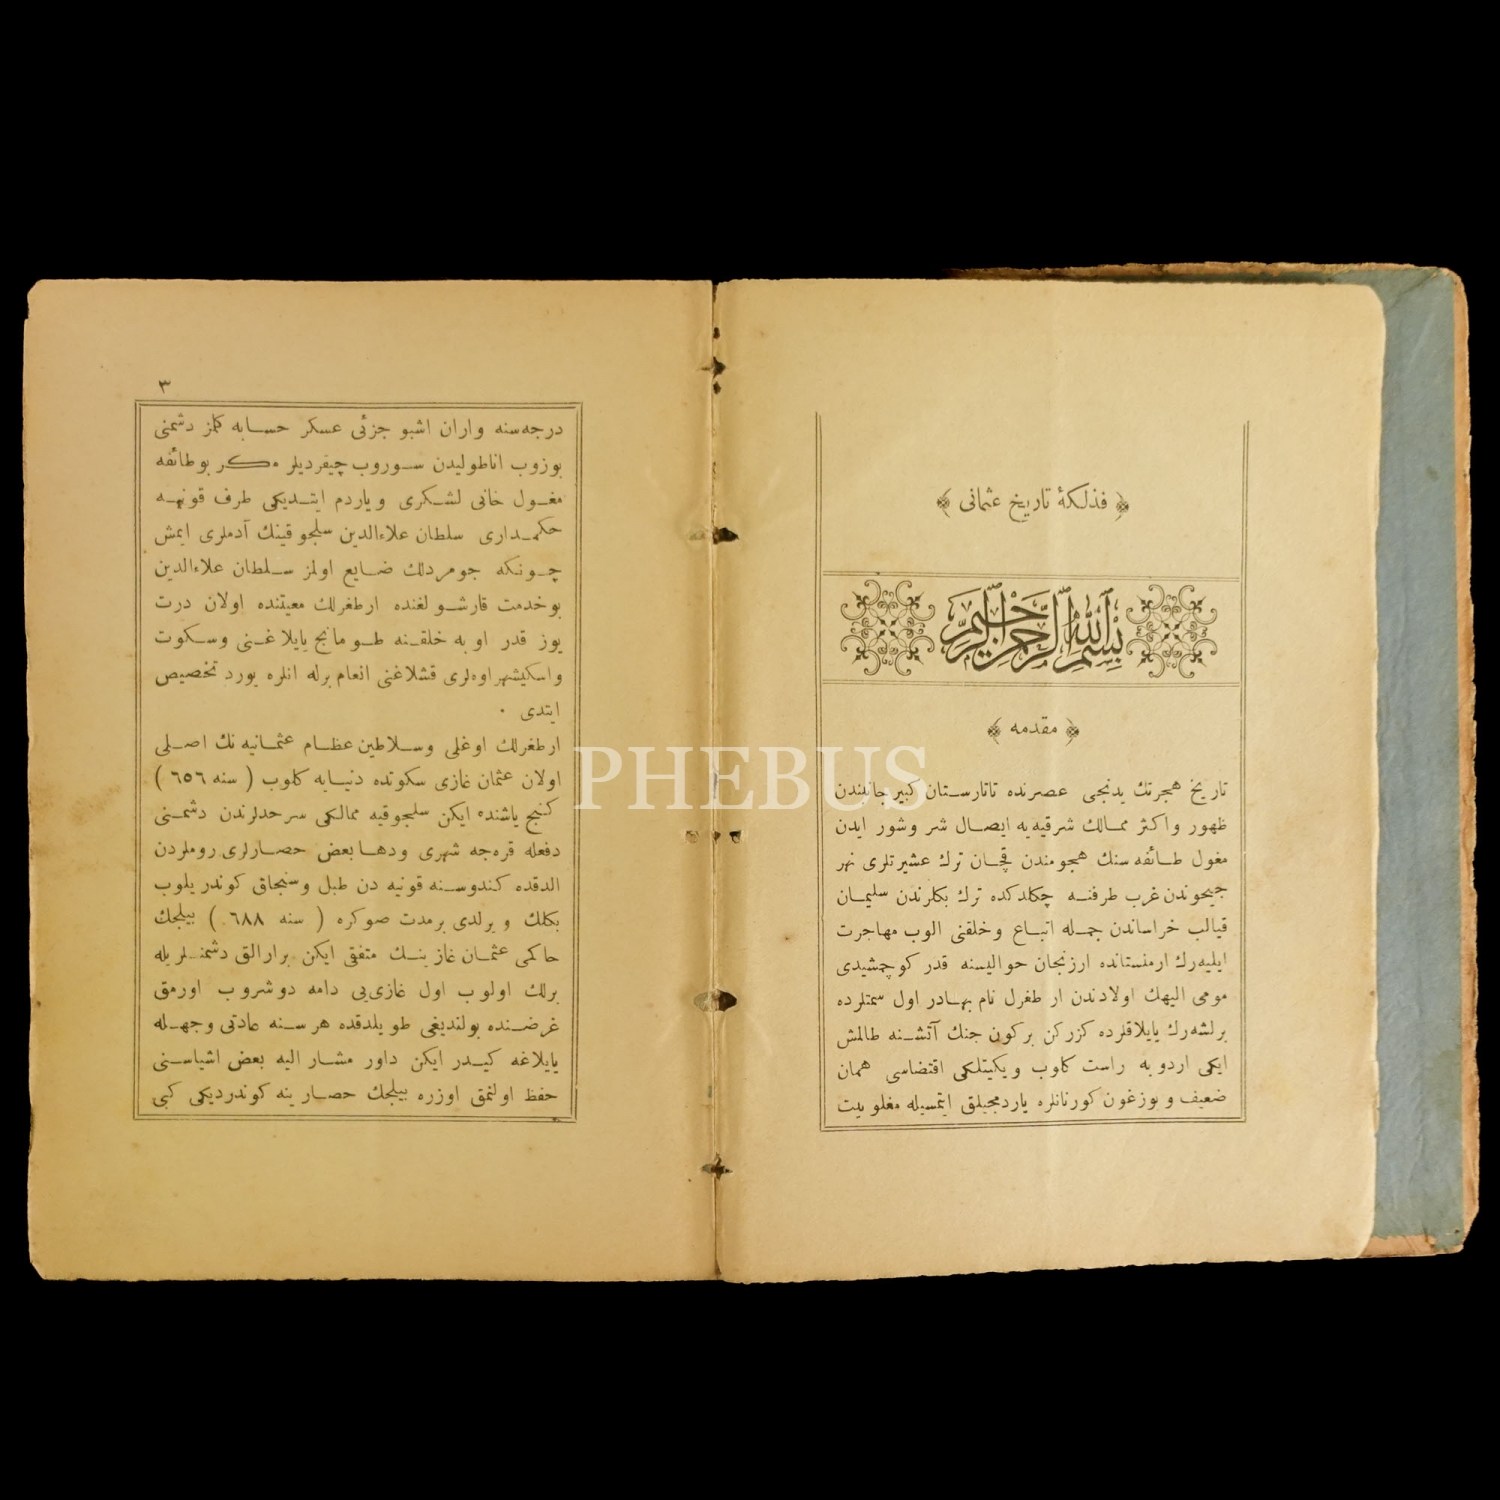 ﴿ فذلكهٔ تاريخ عثمانى ﴾
بسم الله الرحمن الرحيم
﴿ مقدمه ﴾
تاريخ هجرتك يدنجى عصرنده تاتارستان كبير جانبندن
ظهور واكثر ممالك شرقيه‌يه ايصال شر وشور ايدن
مغول طائفه سنك هجومندن قچان ترك عشيرتلرى نهر
جيحوندن غرب طرفنه چكلدكده ترك بكلرندن سليمان
قيالب خراساندن جمله اتباع وخلقنى الوب مهاجرت
ايليه‌رك ارمنستانده ارزنجان حواليسنه قدر كوچمشيدى
مومى اليهك اولادندن ارطغرل نام بهادر اول سمتلرده
برلشه‌رك يايلاقلرده كزركن بركون جنك آتشنه طالمش
ايكى اردويه راست كلوب ويكيتلكى اقتضاسى همان
ضعيف و بوزغون كورنانلره ياردمجيلق ايتمسيله مغلوبيت
٣
درجه‌سنه واران اشبو جزئى عسكر حسابه كلمز دشمنى
بوزوب اناطوليدن سوروب چيقرديلر مكر بوطائفه
مغول خانى لشكرى وياردم ايتديكى طرف قونيه
حكمدارى سلطان علاءالدين سلجوقينك آدملرى ايمش
چونكه جومردلك ضايع اولمز سلطان علاءالدين
بوخدمت قارشولغنده ارطغرلك معيتنده اولان درت
يوز قدر اوبه خلقنه طومانيج يايلاغنى وسكوت
واسكيشهر اوه‌لرى قشلاغنى انعام برله انلره يورد تخصيص
ايتدى ٠
ارطغرلك اوغلى وسلاطين عظام عثمانيه نك اصلى
اولان عثمان غازى سكوتده دنيايه كلوب ( سنه ٦٥٦ )
كنج ياشنده ايكن سلجوقيه ممالكى سرحدلرندن دشمنى
دفعله قره‌جه شهرى ودها بعض حصارلرى روملردن
الدقده كندوسنه قونيه دن طبل وسنجاق كوندريلوب
بكلك ويرلدى برمدت صوكره ( سنه ٦٨٨ ) بيلجك
حاكمى عثمان غازينك متفقى ايكن برارالق دشمنلريله
برلك اولوب اول غازى‌يى دامه دوشروب اورمق
غرضنده بولنديغى طويلدقده هر سنه عادتى وجهله
يايلاغه كيدر ايكن داور مشار اليه بعض اشياسنى
حفظ اولنمق اوزره بيلجك حصارينه كوندرديكى كبى
PHEBUS